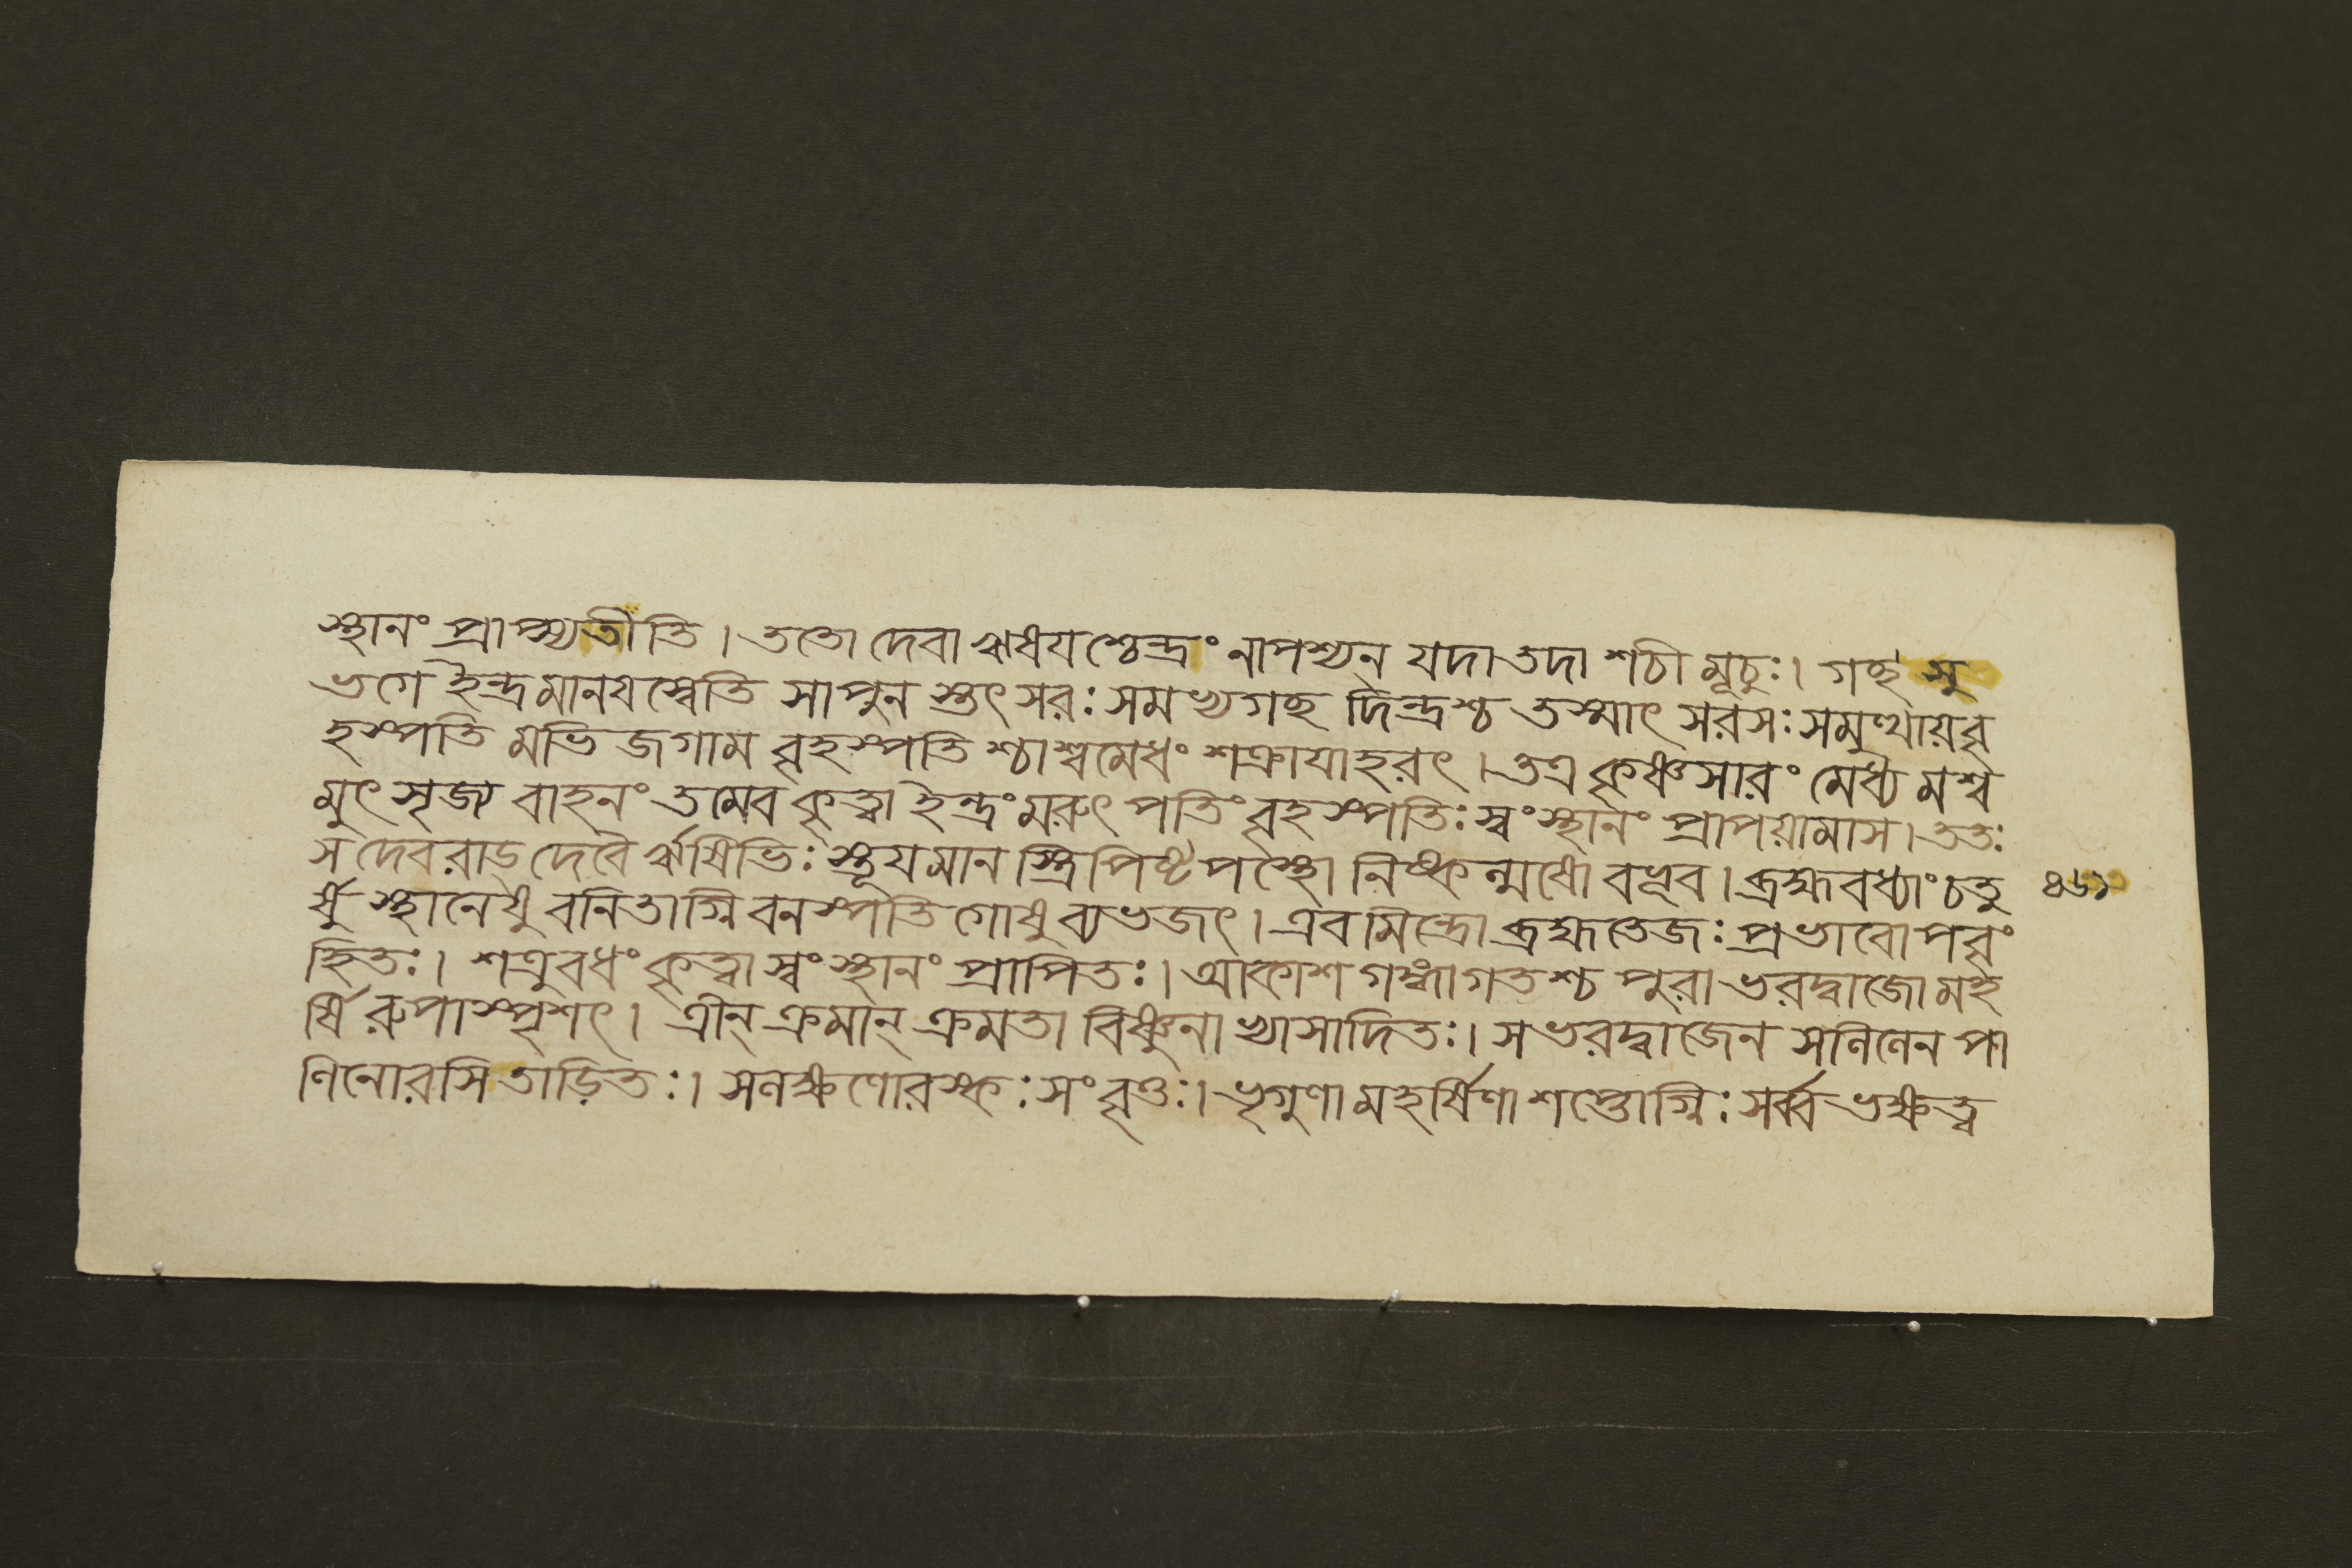 স্থানং প্রাপ্স্যতীতি। ততো দেবা ঋষয়শ্চেন্দ্রং নাপশ্যন্ যদা তদা শচী মূচুঃ। গচ্ছ সু
ভগে ইন্দ্র মানয়স্বেতি সা পুন স্তৎ সরঃ সমভ্যগচ্ছ দিন্দ্রশ্চ তস্মাৎ সরসঃ সমুত্থায় বৃ
হস্পতি মভি জগাম বৃহস্পতি শ্চাশ্বমেধং শক্রাযাহরৎ। তত্র কৃষ্ণসারং মেধ্য মশ্ব
মুৎ সৃজ্য বাহনং তমেব কৃত্বা ইন্দ্রং মরুৎ পতিং বৃহস্পতিঃ স্বং স্থানং প্রাপয়ামাস। ততঃ
স দেবরাড্ দেবৈ র্ঋষিভিঃ স্তূয়মান স্ত্রিপিষ্টপস্থো নিষ্কল্মষো বভূব। ব্রহ্মবধ্যাং চতু ৪৬১
র্ষু স্থানেষু বনিতাগ্নি বনস্পতি গোষু ব্যভজৎ। এবমিন্দ্রো ব্রহ্মতেজঃ প্রভাবোপবৃং
হিতঃ। শত্রুবধং কৃত্বা স্বং স্থানং প্রাপিতঃ। আকাশ গঙ্গাগতশ্চ পুরা ভরদ্বাজো মহ
র্ষি রুপাস্পৃশৎ। ত্রীন্ ক্রমান্ ক্রমতা বিষ্ণুনা ভ্যাসাদিতঃ। স ভরদ্বাজেন সলিলেন পা
ণিনোরসি তাড়িতঃ। সলক্ষণোরস্কঃ সংবৃত্তঃ। ভৃগুণা মহর্ষিণা শপ্তোগ্নিঃ সর্ব্ব ভক্ষত্ব